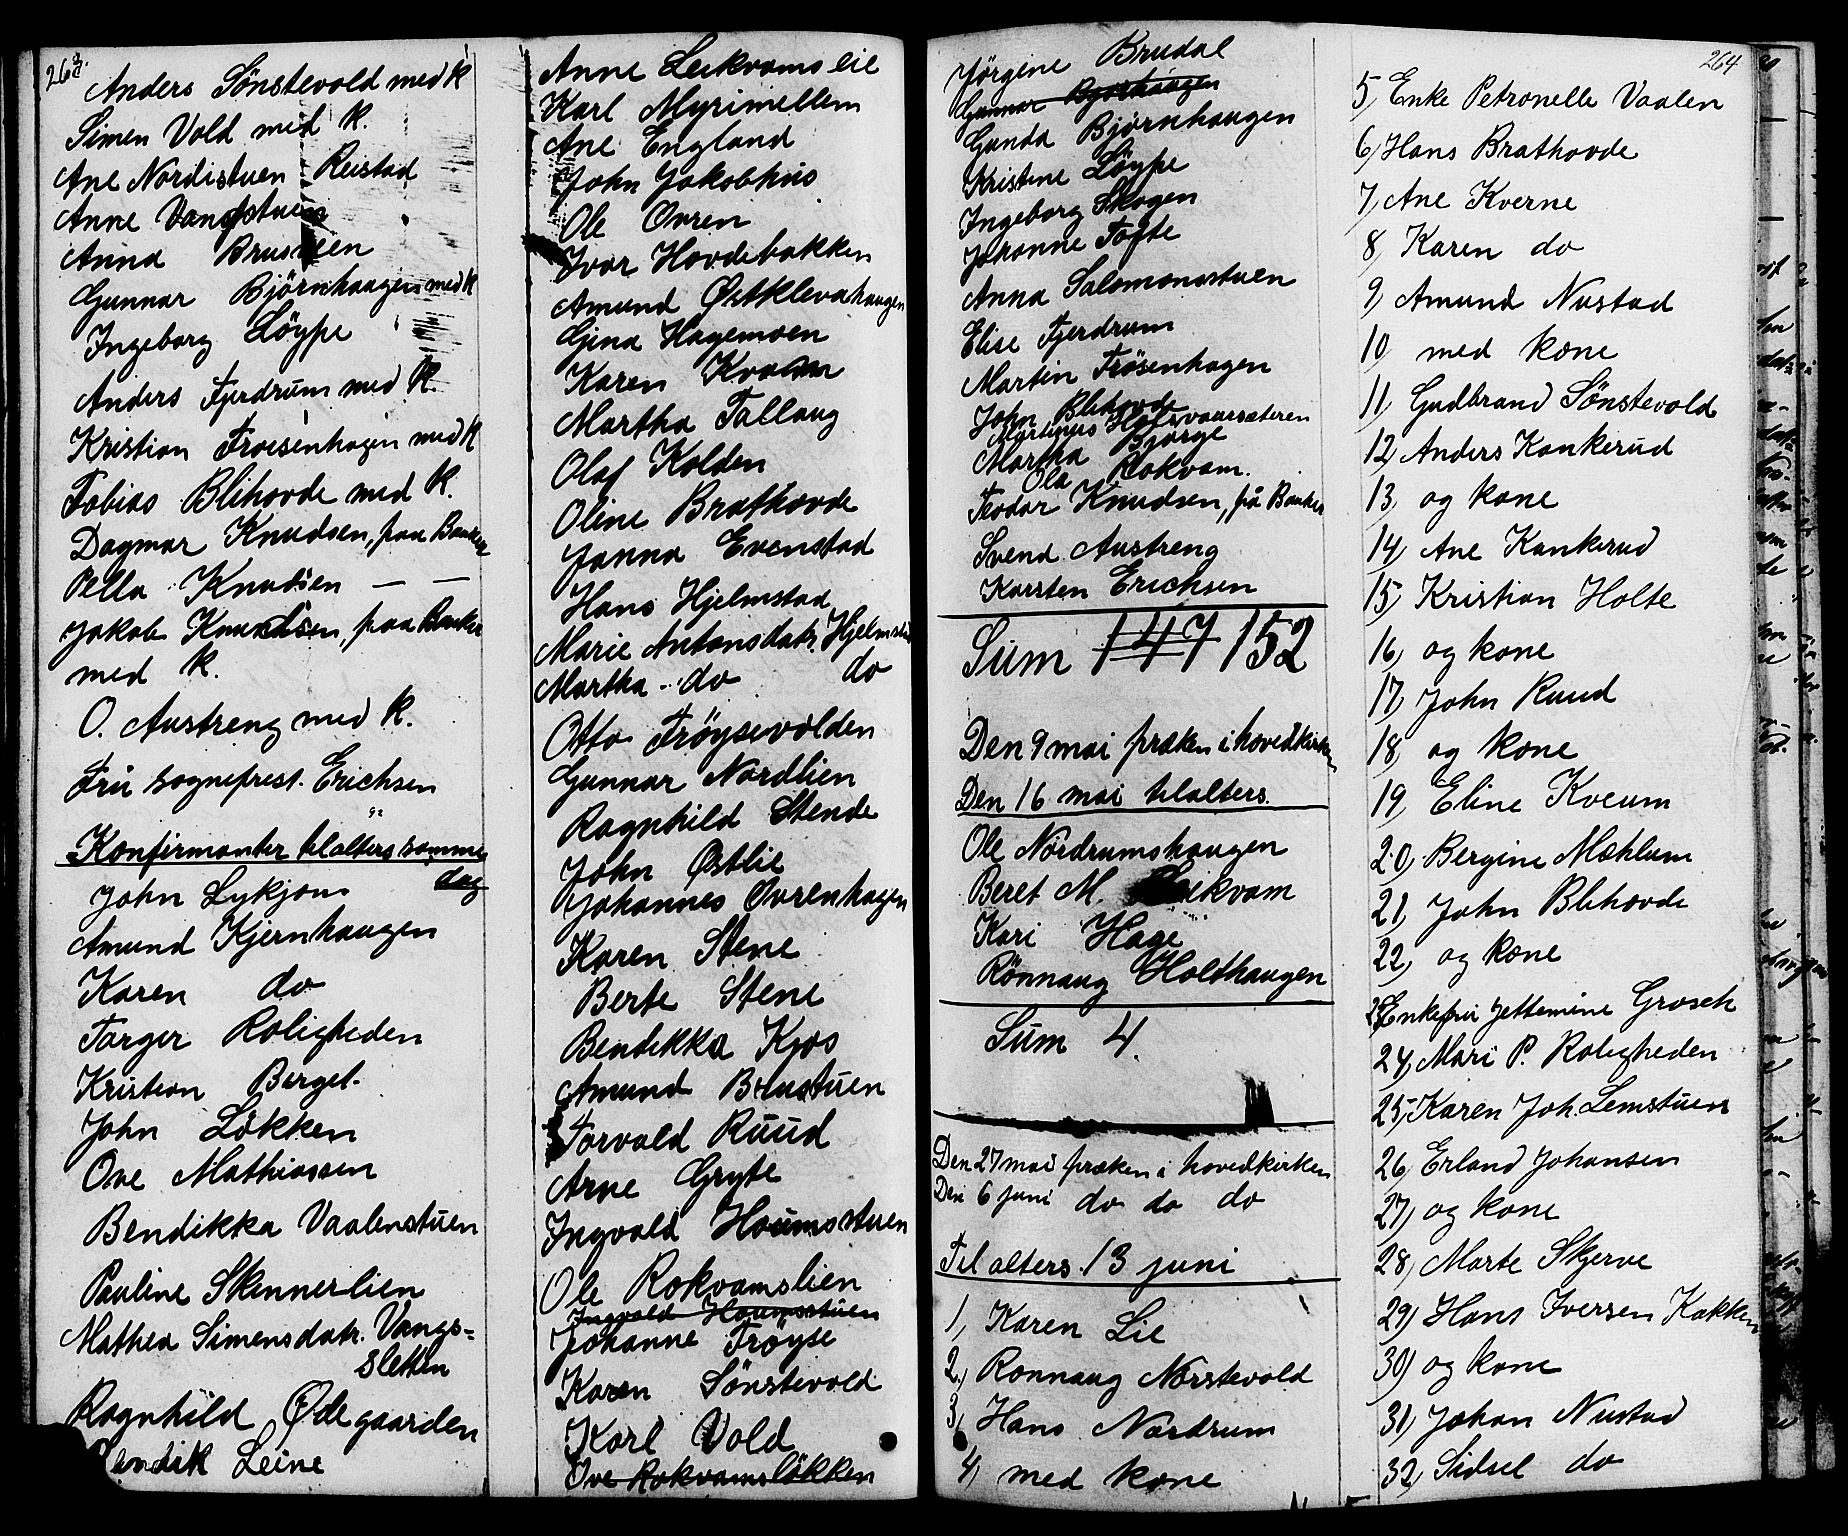 263.
Anders Sönstevold med k
Simen Vold med k.
Ane Nordistuen Reistad
Anne Vangstuen
Anna Brustuen
Gunnar Björnhaugen med k
Ingeborg Löype
Anders Fjerdrum med k.
Kristian Froisenhagen med k
Tobias Blihovde med k.
Dagmar Knudsen, paa Banken
Pella Knudsen — —
Jakob Knudsen, paa Banken
med k.
O. Austreng med k.
Fru sogneprest. Erichsen
Konfirmanter til alters samme
dag
John Lykjom
Amund Kjernhaugen
Karen do
Torger Roligheden
Kristian Berget.
John Lökken
Ove Mathiassen
Bendikka Vaalenstuen
Pauline Skennerlien
Mathea Simensdatr. Vangs=
sletten
Ragnhild Ødegaarden
Bendik Leine
Anne Leikvams eie
Karl Myrimellem
Ane England
John Jakobhus
Ole Ovren
Ivar Hovdebakken
Amund Østklevahaugen
Gina Hagemoen
Karen Kvam
Martha Tallaug
Olaf Kolden
Oline Brathovde
Janna Evenstad
Hans Hjelmstad
Marie Antonsdatr. Hjelmstad
Martha do do
Otto Tröysevolden
Gunnar Nordlien
Ragnhild Stende
John Østlie
Johannes Ovrenhagen
Karen Stene
Berte Stene
Bendikka Kjos
Amund Brustuen
Torvald Ruud
Arne Gryte
Ingvald Houmsstuen
Ole Rokvamslien
Ingvald Houmsstuen
Johanne Tröyse
Karen Sönstevold
Karl Vold
Ove Rokvamslökken
Jörgine Brudal
Gunnar Bjørhaugen
Gunda Bjørnhaugen
Kristine Löype
Ingeborg Skogen
Johanne Tofte
Anna Salomonsstuen
Elise Fjerdrum
Martin Fròsenhagen
John Blihovde
Martinus Halvvaarsæteren
Martha Bjørge
Ola Rokvam.
Teodor Knudsen, på Banken
Svend Austreng
Karsten Erichsen
Sum 147 152
Den 9 mai præken i hovedkirken
Den 16 mai til alters.
Ole Nordrumshaugen
Beret M. Leikvam
Kari Hage
Rönnaug Holthaugen
Sum 4.
Den 27 mai præken i hovedkirken
Den 6 juni do do do
Til alters 13 juni
1, Karen Lie
2, Ronnaug Norstevold
3, Hans Nordrum
4, med kone
264
5, Enke Petronelle Vaalen
6, Hans Brathovde
7, Ane Kverne
8, Karen do
9, Amund Nustad
10, med kone
11, Gudbrand Sönstevold
12, Anders Kankerud
13, og kone
14, Ane Kankerud
15, Kristian Holte
16, og kone
17, John Ruud
18, og kone
19, Eline Kveum
20, Bergine Mæhlum
21, John Blihovde
22, og kone
23, Enkefru Jettemine Grosch
24, Mari P. Roligheden
25, Karen Joh. Lemstuen
26, Erland Johansen
27, og kone
28, Marte Skjerve
29, Hans Iversen Kakken
30, og kone
31, Johan Nustad
32, Sidsel do